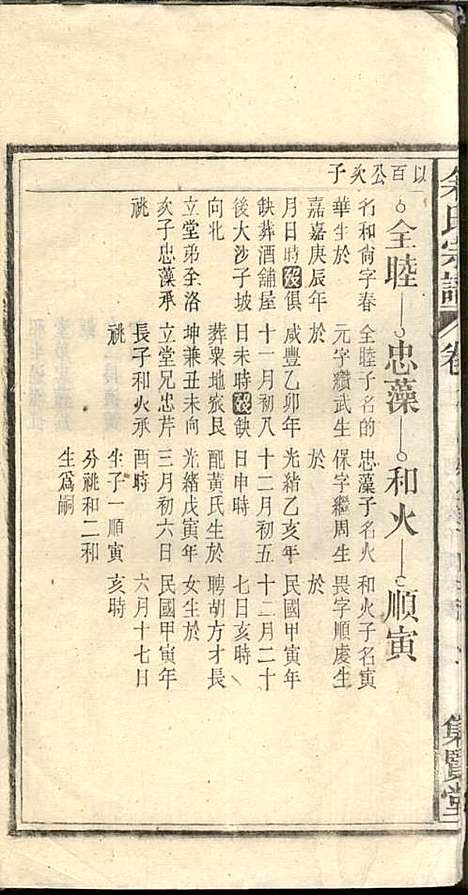 氏宗譜
卷
集覽堂
以百公次子
全睦
忠藻
和火
順寅
名和尙字春
華生於
嘉嘉庚辰年
月日時歿俱
缺葬酒舖屋
後大沙子坡
向北
立堂弟全洛
次子忠藻承
祧
全睦子名的
元字纘武生
於
咸豐乙卯年
十一月初八
日未時歿缺
葬粟地嵏艮
坤兼丑未向
立堂兄忠芹
長子和火承
祧
忠藻子名火
保字繼周生
於
光緒乙亥年
十二月初五
日申時
配黃氏生於
光緒戊寅年
三月初六日
酉時
生子一順寅
分祧和二和
生爲嗣
和火子名寅
畏字順慶生
於
民國甲寅年
十二月二十
七日亥時
聘胡方才長
女生於
民國甲寅年
六月十七日
亥時